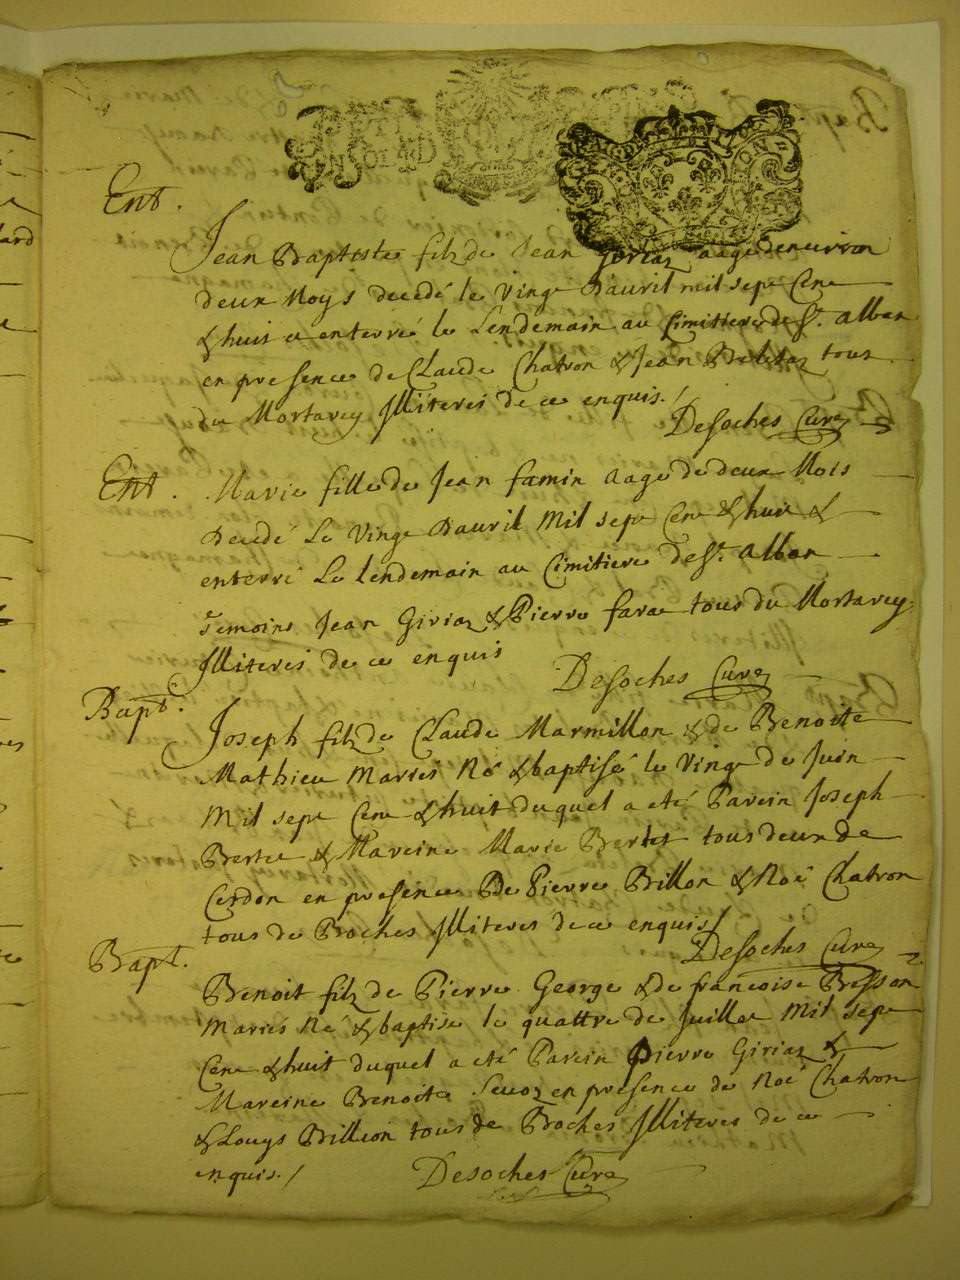 Ent.
Jean Baptiste filz de Jean Giriaz aagé denviron
deux Moys decedé le vingt d'auril mil sept Cent
& huit et enterré le Lendemain au Cimitiere de St. Alban
en presence de Claude Chatron & Jean tous
du Mortarey Illiteres de ce enquis./
Desoches Curé
Ent. Marie fille de Jean famin aagé de deux Mois
Decedé Le vingt d'auril Mil sept Cent & huit &
enterré Le lendemain au Cimitiere de St. Alban
Temoins Jean Giriaz & Pierre farae tous du Mortarey
Illiteres de ce enquis
Desoches Curé
Bapt.
Joseph filz de Claude Marmillon & de Benoite
Mathieu Mariés Né & baptisé le vingt de Juin
Mil sept Cent & huit duquel a eté Parein Joseph
Bertet & Mareine Marie Bertet tous deux de
Cerdon en presence De Pierre Billon & Noé Chatron
tous de Broches Illiteres de ce enquis/
Desoches Curé
Bapt.
Benoit filz de Pierre George & de francoise Besson
Mariés Né & baptisé le quattre de Juillet Mil sept
Cent & huit duquel a eté Parein Pierre Giriaz &
Mareine Benoite en presence de Noé Chatron
& Louys Billion tous de Broches Illiteres de ce
enquis./
Desoches Curé